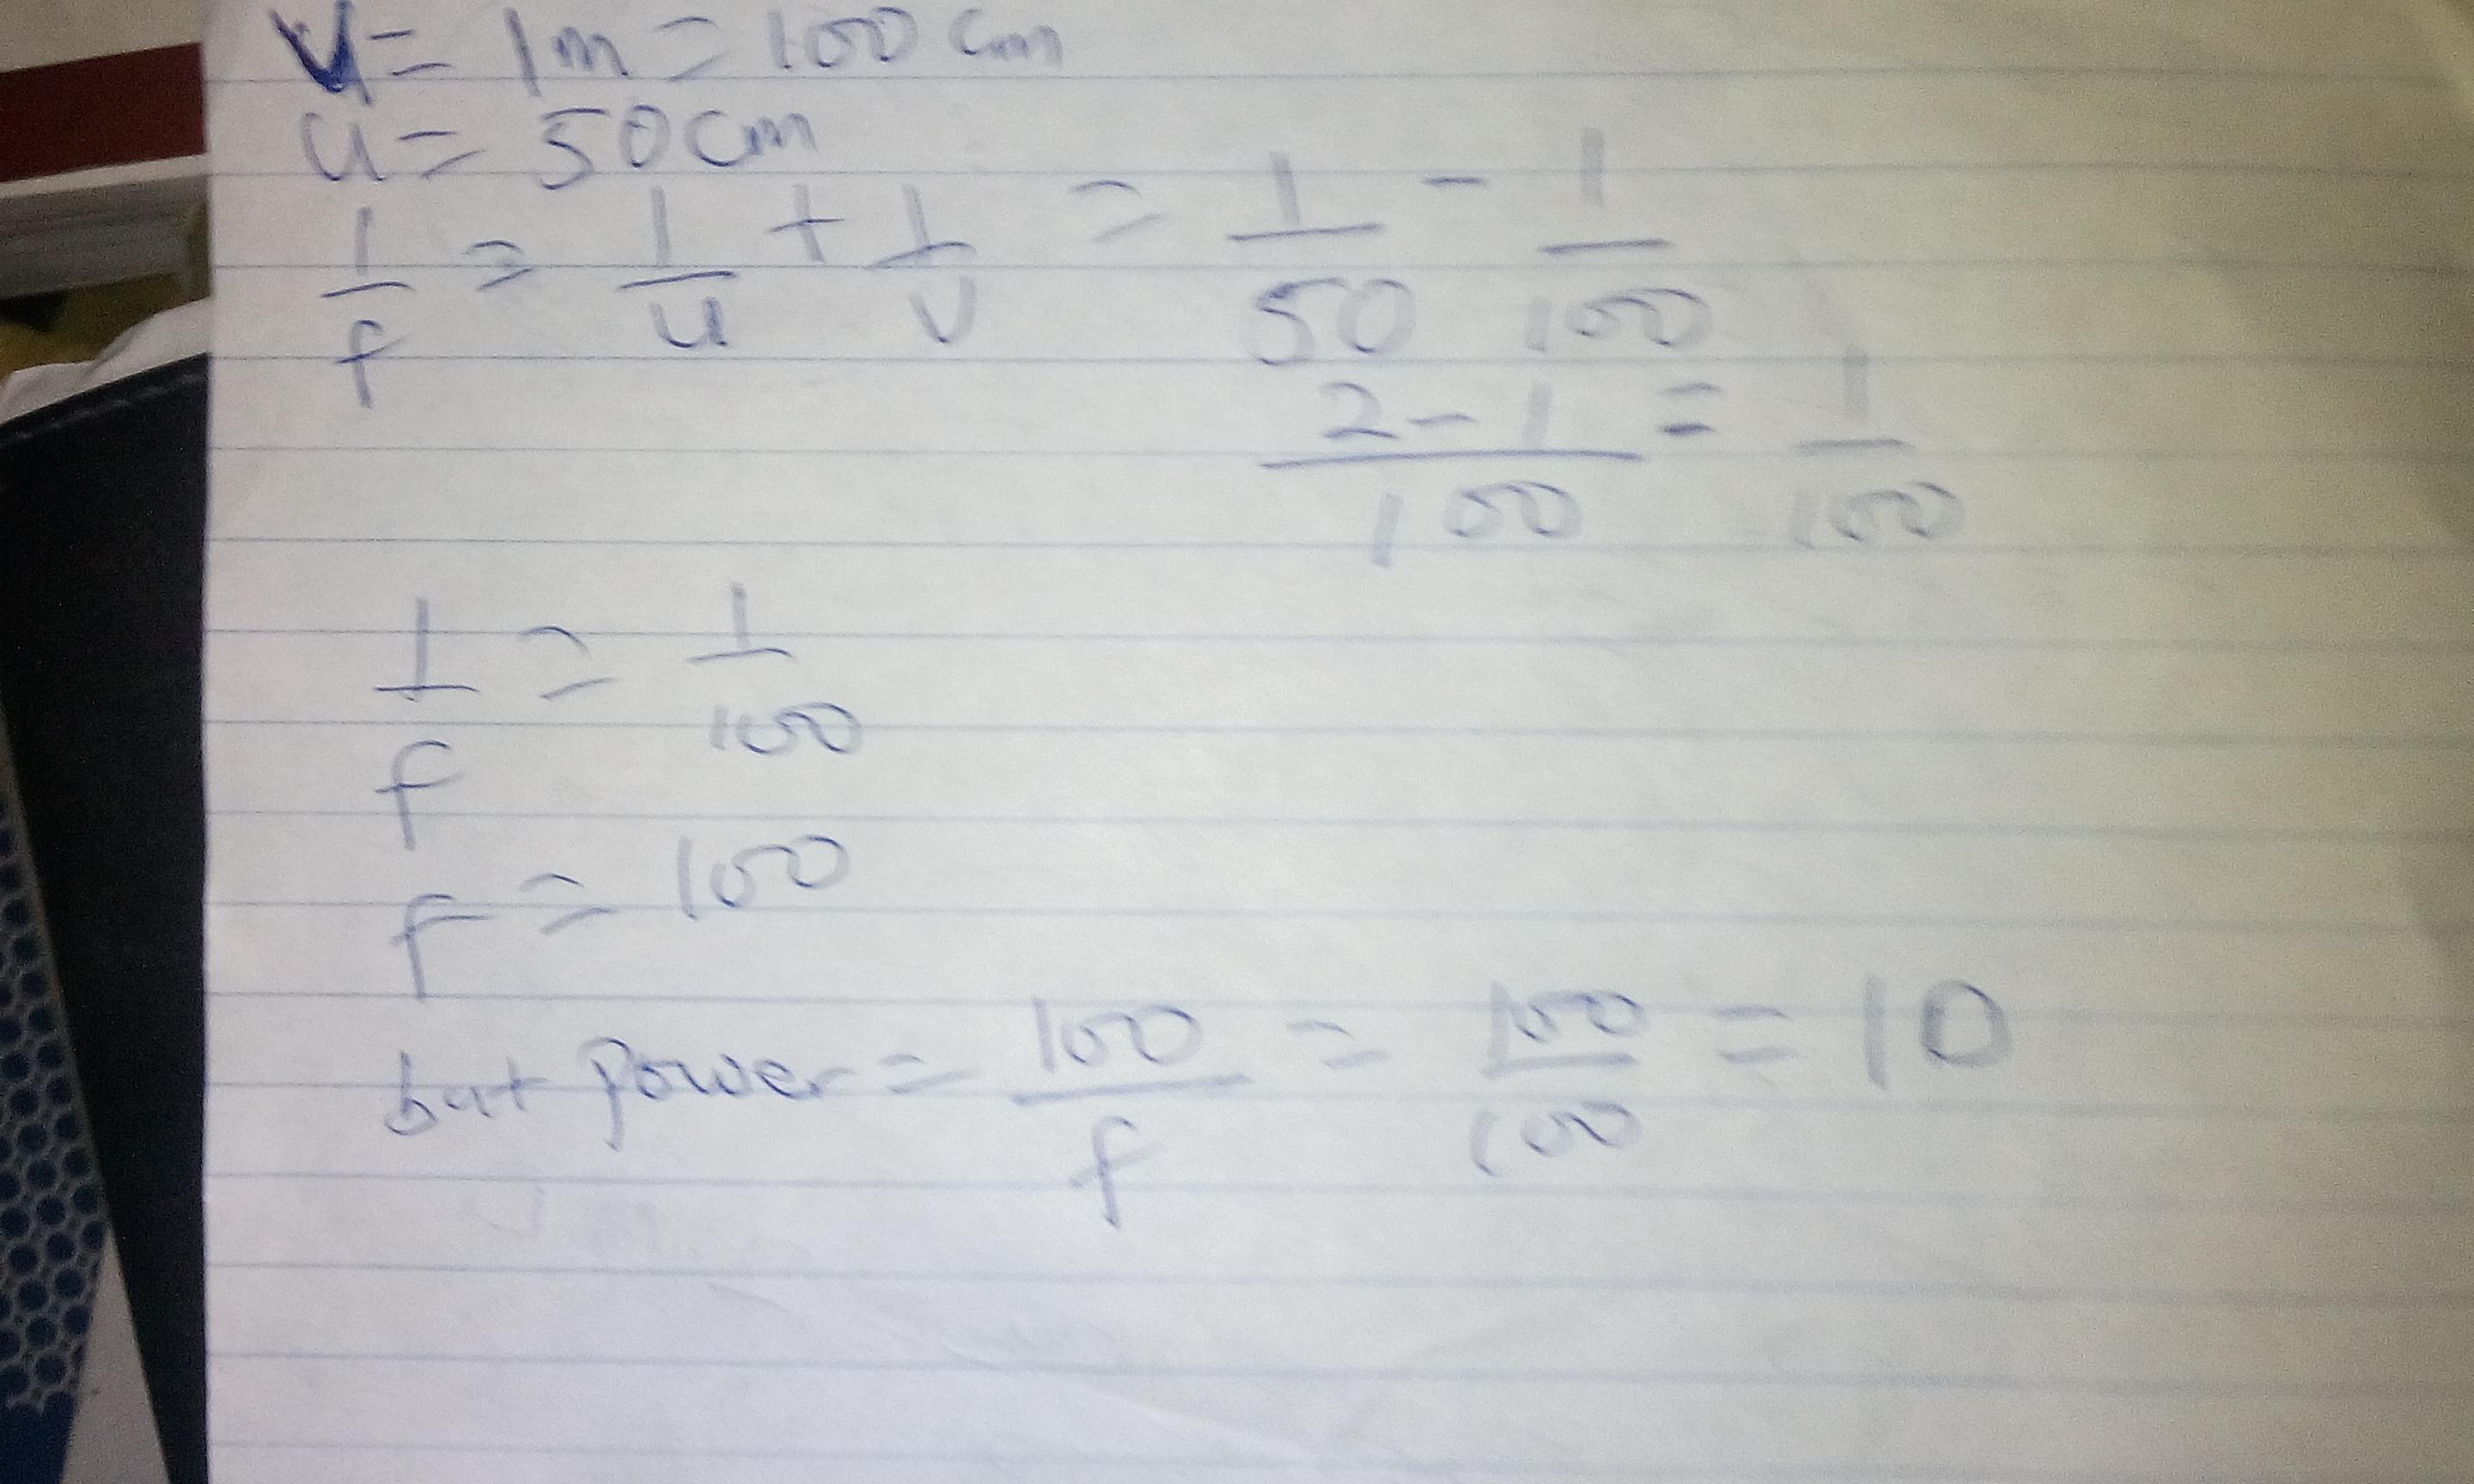 V = 1m = 100 cm
u = 50cm
1/f = 1/u + 1/v = 1/50 - 1/100
2-1/100 = 1/100
1/f = 1/100
f = 100
but Power = 100/f = 100/100 = 10